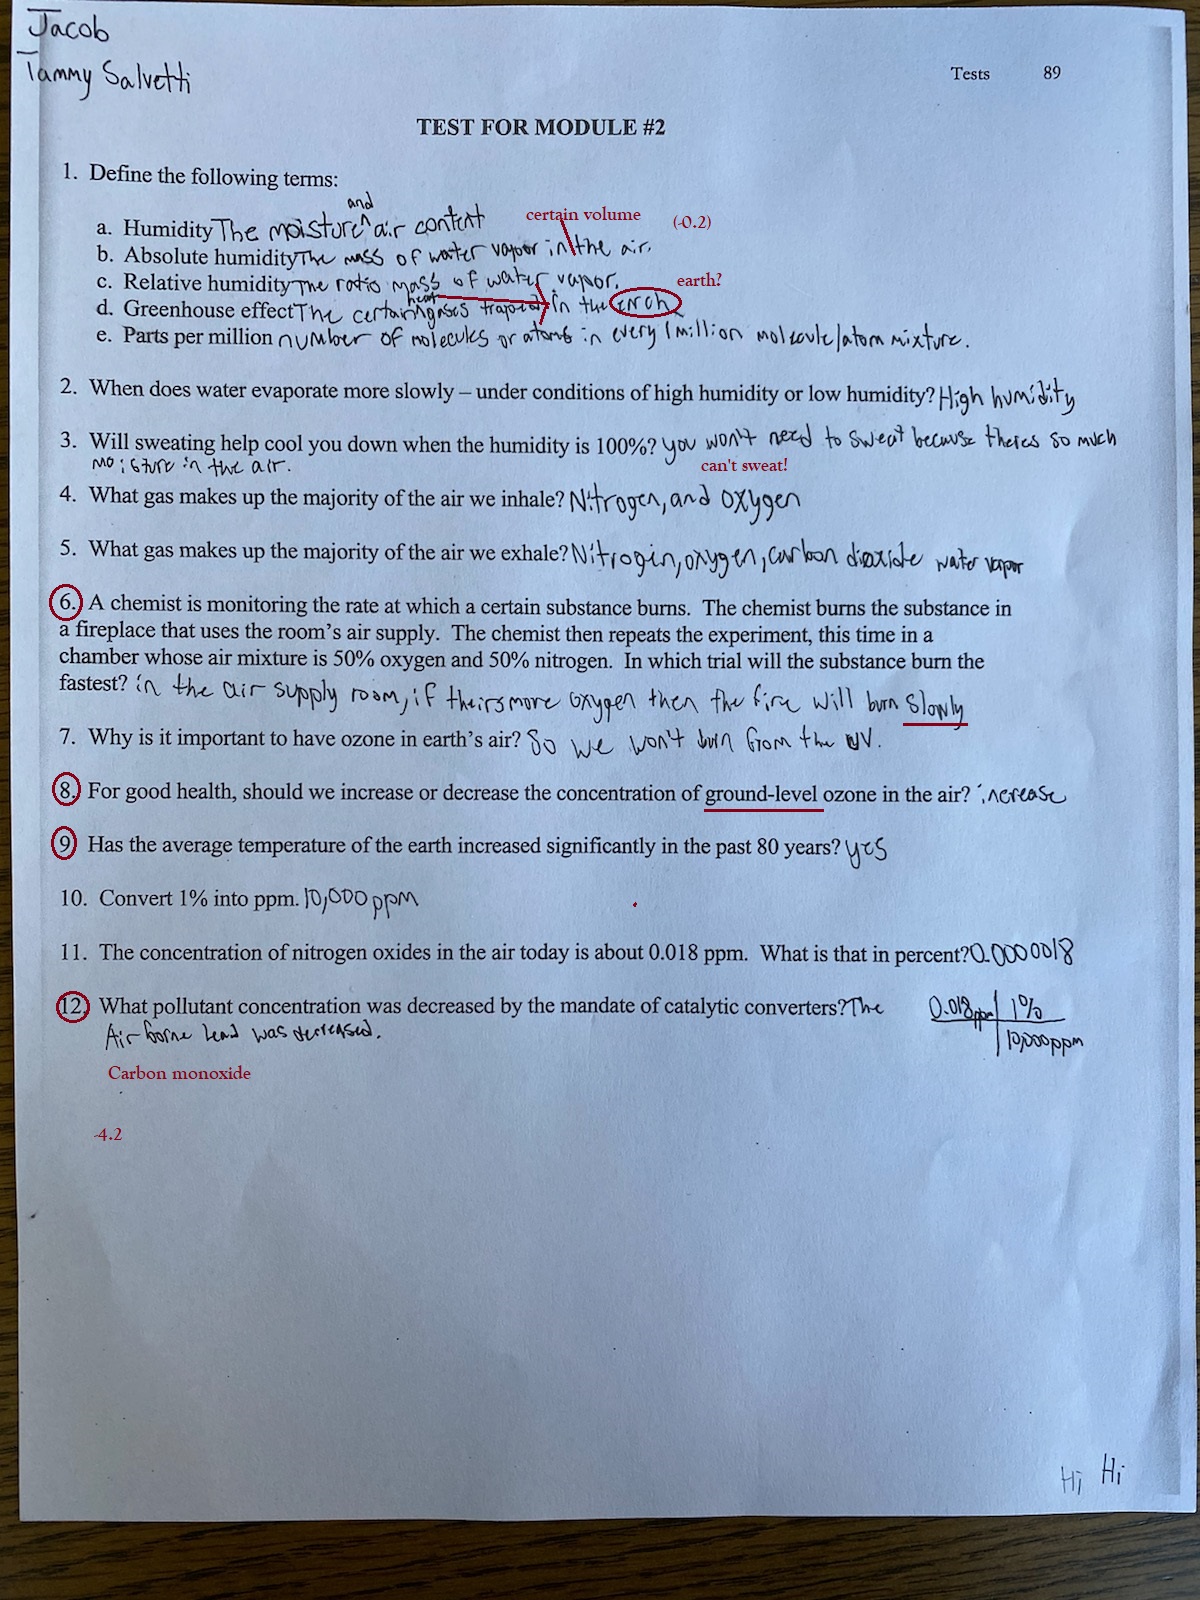 Jacob
Tammy Salvetti
Tests 89
TEST FOR MODULE #2
1. Define the following terms:
and
a. Humidity The moisture ^ air content certain volume (-0.2)
b. Absolute humidity The mass of water vapor in the air.
c. Relative humidity The ratio mass of water vapor. earth?
heat
d. Greenhouse effect The certain gases traped in the erch
e. Parts per million number of molecules or atoms in every 1 million molecule/atom mixture.
2. When does water evaporate more slowly – under conditions of high humidity or low humidity? High humidity
3. Will sweating help cool you down when the humidity is 100%? you won't need to sweat because theres so much
moisture in the air.
can't sweat!
4. What gas makes up the majority of the air we inhale? Nitrogen, and oxygen
5. What gas makes up the majority of the air we exhale? Nitrogin, oxygen, carbon dioxide water vapor
6. A chemist is monitoring the rate at which a certain substance burns. The chemist burns the substance in
a fireplace that uses the room's air supply. The chemist then repeats the experiment, this time in a
chamber whose air mixture is 50% oxygen and 50% nitrogen. In which trial will the substance burn the
fastest? in the air supply room, if theirs more oxygen then the fire will burn slowly
7. Why is it important to have ozone in earth's air? So we won't burn from the UV.
8. For good health, should we increase or decrease the concentration of ground-level ozone in the air? increase
9 Has the average temperature of the earth increased significantly in the past 80 years? yes
10. Convert 1% into ppm. 10,000 ppm
11. The concentration of nitrogen oxides in the air today is about 0.018 ppm. What is that in percent? 0.0000018
12. What pollutant concentration was decreased by the mandate of catalytic converters? The
Air borne lead was decreased.
0.018ppm 1%
10,000ppm
Carbon monoxide
-4.2
Hi Hi